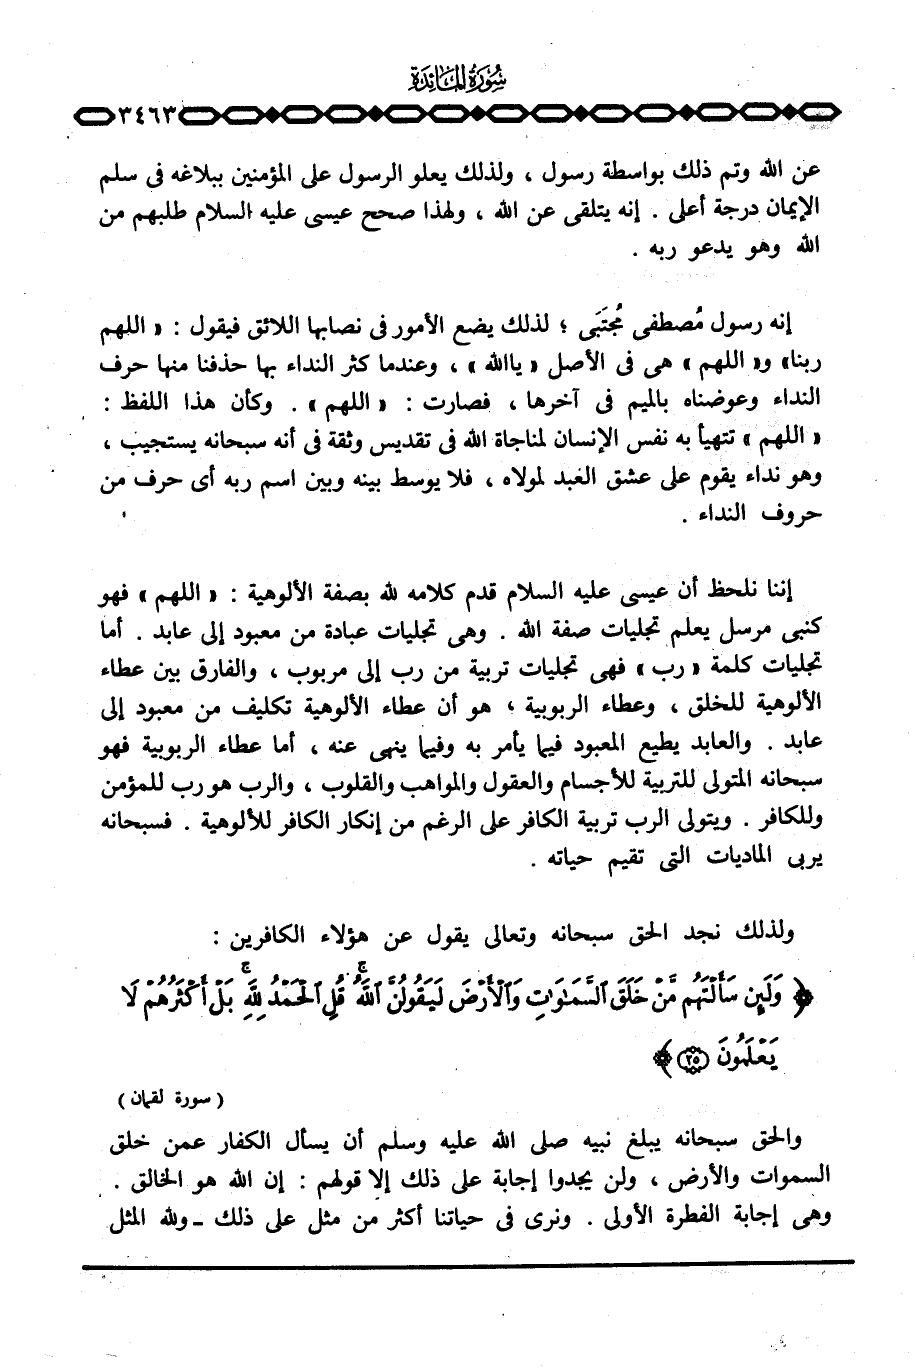 سُورَةُ المَائِدَة
٣٤٦٣
عن الله وتم ذلك بواسطة رسول ، ولذلك يعلو الرسول على المؤمنين ببلاغه فى سلم
الإيمان درجة أعلى . إنه يتلقى عن الله ، ولهذا صحح عيسى عليه السلام طلبهم من
الله وهو يدعو ربه .
إنه رسول مُصطفى مُجتَبَى ؛ لذلك يضع الأمور فى نصابها اللائق فيقول : « اللهم
ربنا» و« اللهم » هى فى الأصل « ياالله » ، وعندما كثر النداء بها حذفنا منها حرف
النداء وعوضناه بالميم فى آخرها ، فصارت : « اللهم » . وكأن هذا اللفظ :
« اللهم » تتهيأ به نفس الإنسان لمناجاة الله فى تقديس وثقة فى أنه سبحانه يستجيب ،
وهو نداء يقوم على عشق العبد لمولاه ، فلا يوسط بينه وبين اسم ربه أى حرف من
حروف النداء .
إننا نلحظ أن عيسى عليه السلام قدم كلامه لله بصفة الألوهية : « اللهم » فهو
كنبى مرسل يعلم تجليات صفة الله . وهى تجليات عبادة من معبود إلى عابد . أما
تجليات كلمة « رب » فهى تجليات تربية من رب إلى مربوب ، والفارق بين عطاء
الألوهية للخلق ، وعطاء الربوبية ؛ هو أن عطاء الألوهية تكليف من معبود إلى
عابد . والعابد يطيع المعبود فيما يأمر به وفيما ينهى عنه ، أما عطاء الربوبية فهو
سبحانه المتولى للتربية للأجسام والعقول والمواهب والقلوب ، والرب هو رب للمؤمن
وللكافر . ويتولى الرب تربية الكافر على الرغم من إنكار الكافر للألوهية . فسبحانه
يربى الماديات التى تقيم حياته .
ولذلك نجد الحق سبحانه وتعالى يقول عن هؤلاء الكافرين :
﴿ وَلَئِن سَأَلْتَهُم مَّنْ خَلَقَ ٱلسَّمَٰوَٰتِ وَٱلْأَرْضَ لَيَقُولُنَّ ٱللَّهُ ۚ قُلِ ٱلْحَمْدُ لِلَّهِ ۚ بَلْ أَكْثَرُهُمْ لَا
يَعْلَمُونَ ٢٥ ﴾
( سورة لقمان )
والحق سبحانه يبلغ نبيه صلى الله عليه وسلم أن يسأل الكفار عمن خلق
السموات والأرض ، ولن يجدوا إجابة على ذلك إلا قولهم : إن الله هو الخالق .
وهى إجابة الفطرة الأولى . ونرى فى حياتنا أكثر من مثل على ذلك ـ ولله المثل